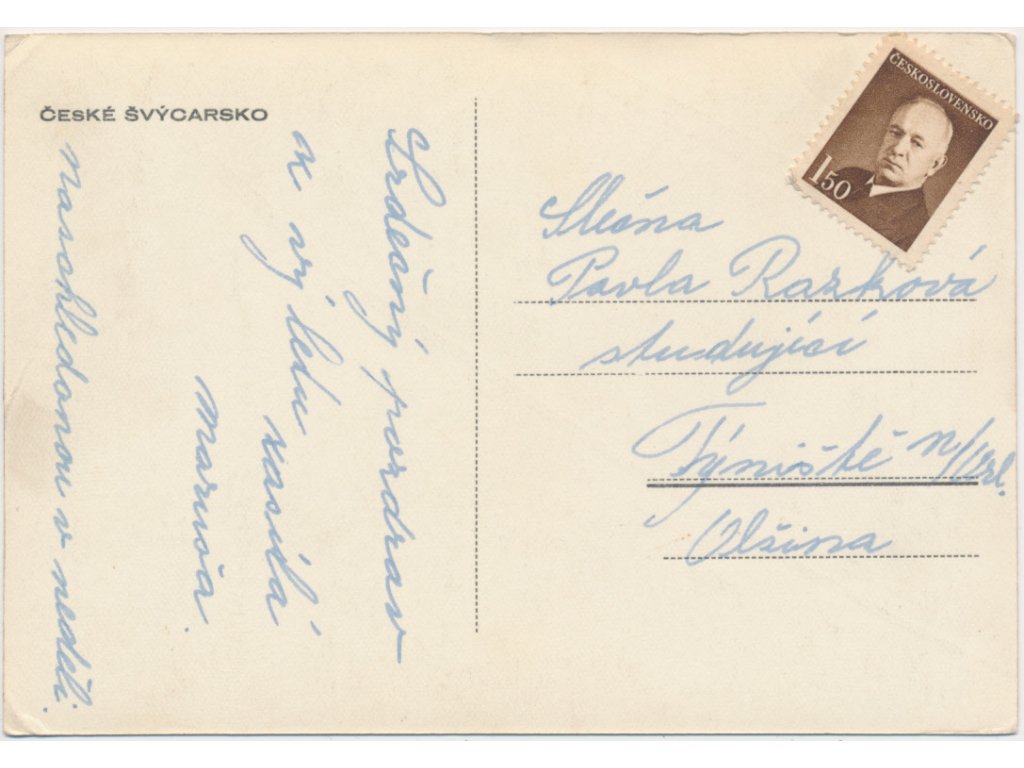 ČESKÉ ŠVÝCARSKO
Srdečný pozdrav
z výletu
zasílá
Maruša.
Nasohledanou v neděli.
ČESKOSLOVENSKO
1.50
Slečna
Pavla Razková
studující
Týniště n/Orl.
Olšina